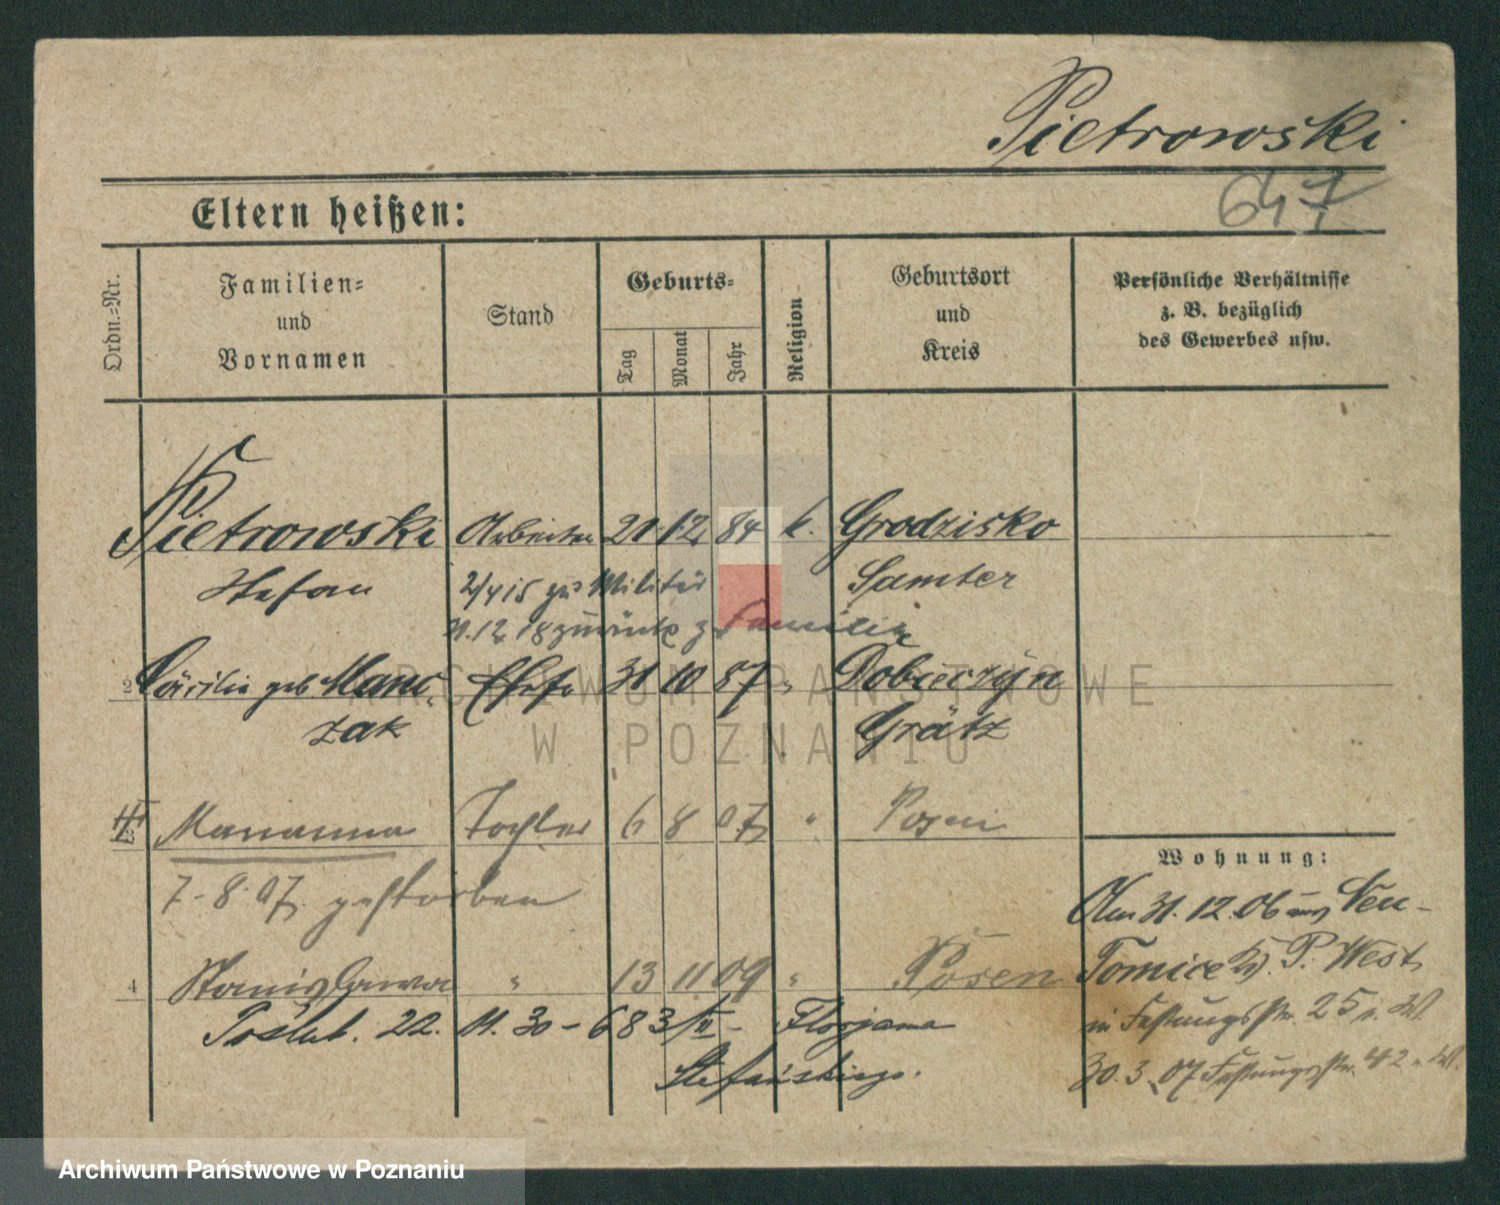 Pietrowski
647
Eltern heißen:
Ordn.-Nr.
Familien-
und
Vornamen
Stand
Geburts-
Tag
Monat
Jahr
Religion
Geburtsort
und
Kreis
Persönliche Verhältnisse
z. B. bezüglich
des Gewerbes usw.
Pietrowski Arbeiter 21 12 84 k. Grodzisko
Stefan 2/4 15 zu Militär Samter
21.12.18 zurück z Familie
2 Cäcilie geb Manc- Ehefr 31 10 87 " Dobieczyn
zak Grätz
3 Marianna Tochter 6 8 07 " Posen
7-8.07. gestorben
4 Stanislawa " 13 11 09 " Posen
22. 11. 30 - 683/II - Florjana
Stefańskiego.
Wohnung:
Am 31.12.06 aus Neu-
Tomice Kr. P. West
in Festungsstr. 25
30.3.07 Festungsstr. 42
ARCHIWUM PAŃSTWOWE
W POZNANIU
Archiwum Państwowe w Poznaniu